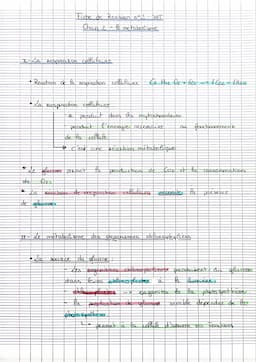 Fiche de Révision n°1 - SVT
Chap 2 - Le métabolisme
I - La respiration cellulaire
• Réaction de la respiration cellulaire
• La respiration cellulaire
produit dans les mitochondries
produit l'énergie nécessaire au fonctionnement
de la cellule
c'est une réaction métabolique
• Le glucose permet la production de Co2 et la consommation
de O2
• La réaction de respiration cellulaire nécessite la présence
de glucose
II - Le métabolisme des organismes chlorophylliens
• La source de glucose :
- Les organismes chlorophylliens produisent du glucose
dans leurs chloroplastes à la lumière
- la production de glucose semble dépendre de la
photosynthèse
permet à la cellule d'assurer ses besoins